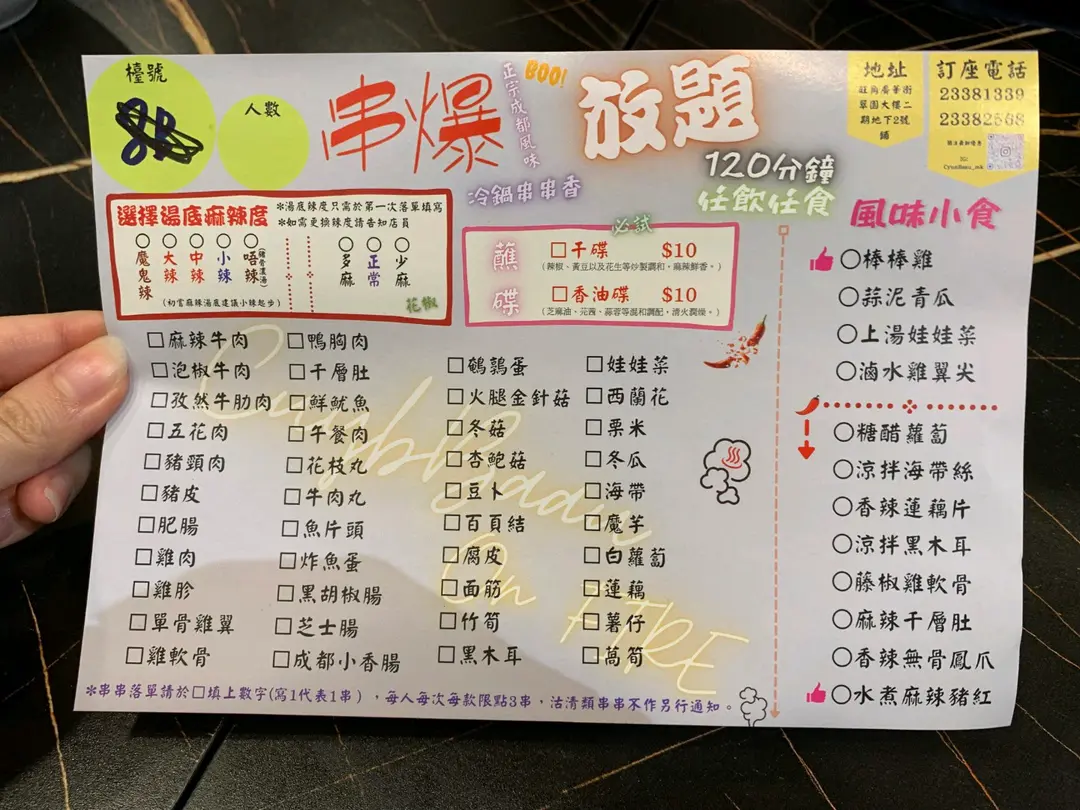 檯號
人數
串爆
正宗成都風味
BOO!
放題
120分鐘
任飲任食
冷鍋串串香
地址
旺角廣華街
翠園大樓二
期地下2號
舖
訂座電話
23381339
23382568
IG:
選擇湯底麻辣度
*湯底辣度只需於第一次落單填寫
*如需更換辣度請告知店員
○魔鬼辣
○大辣
○中辣
○小辣
○唔辣(豬骨濃湯)
○多麻
○正常
○少麻
(初嘗麻辣湯底建議小辣起步)
花椒
必試
蘸碟
□干碟 $10
(辣椒、黃豆以及花生等炒製調和,麻辣鮮香。)
□香油碟 $10
(芝麻油、芫茜、蒜蓉等混和調配,清火潤燥。)
□麻辣牛肉
□泡椒牛肉
□孜然牛肋肉
□五花肉
□豬頸肉
□豬皮
□肥腸
□雞肉
□雞胗
□單骨雞翼
□雞軟骨
□鴨胸肉
□千層肚
□鮮魷魚
□午餐肉
□花枝丸
□牛肉丸
□魚片頭
□炸魚蛋
□黑胡椒腸
□芝士腸
□成都小香腸
□鵪鶉蛋
□火腿金針菇
□冬菇
□杏鮑菇
□豆卜
□百頁結
□腐皮
□面筋
□竹筍
□黑木耳
□娃娃菜
□西蘭花
□粟米
□冬瓜
□海帶
□魔芋
□白蘿蔔
□蓮藕
□薯仔
□萵筍
On FIRE
風味小食
○棒棒雞
○蒜泥青瓜
○上湯娃娃菜
○滷水雞翼尖
○糖醋蘿蔔
○涼拌海帶絲
○香辣蓮藕片
○涼拌黑木耳
○藤椒雞軟骨
○麻辣千層肚
○香辣無骨鳳爪
○水煮麻辣豬紅
*串串落單請於□填上數字(寫1代表1串),每人每次每款限點3串,沽清類串串不作另行通知。